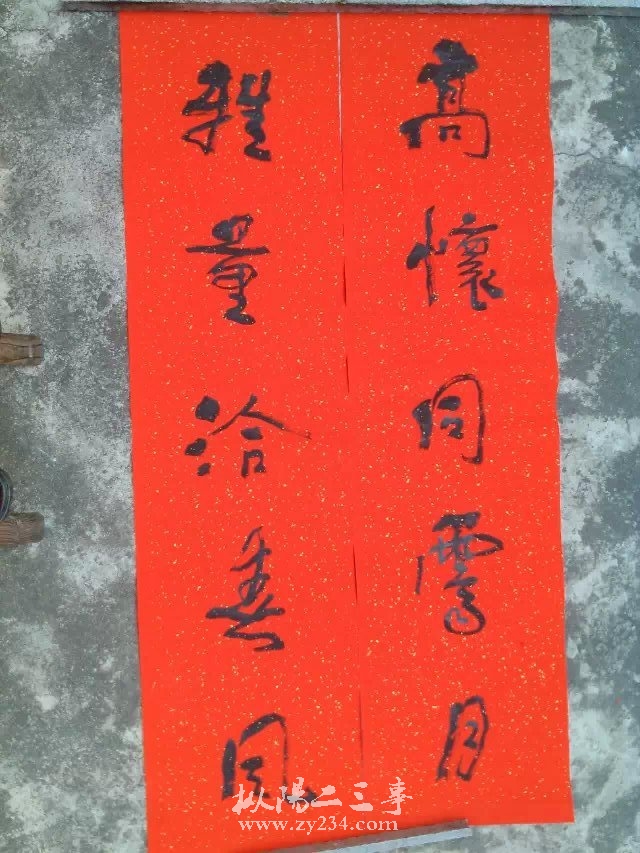 高懷同霽月
雅量洽春風
枞陽二三事
www.zy234.com